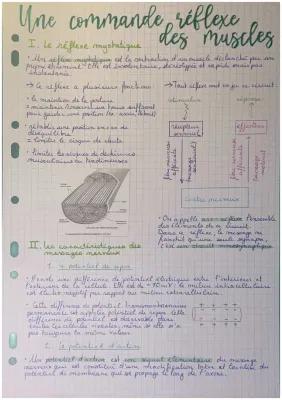 Une commande réflexe
des muscles
I. Le réflexe myotatique
• Un réflexe myotatique est la contraction d'un muscle déclenchée par son
propre étirement. Elle est involontaire, stéréotypée et rapide mais pas
instantanée.
→ Ce réflexe a plusieurs fonctions :
• le maintien de la posture
→ Tout réflexe met en jeu un circuit
stimulation
réponse
récepteur
sensoriel
effecteur
message nerveux
Centre nerveux
• rétablir une position en cas de
déséquilibre
• limiter le risque de chute
• limiter les risques de déchirures
musculaires ou tendineuses
• On appelle arc réflexe l'ensemble
des éléments de ce circuit.
Dans ce réflexe, le message ne
franchit qu'une seule synapse,
c'est un circuit monosynaptique
II. Les caractéristiques des
messages nerveux
1. Le potentiel de repos
• Il existe une différence de potentiel électrique entre l'intérieur et
l'extérieur de la cellule. Elle est de -70mV : le milieu intracellulaire
est électronégatif par rapport au milieu extracellulaire.
• Cette différence de potentiel transmembranaire
permanente est appelée potentiel de repos. Cette
différence de potentiel est observable dans
toutes les cellules vivantes, même si elle n'a
pas toujours la même valeur.
2. Le potentiel d'action
• Un potentiel d'action est un signal élémentaire du message
nerveux qui est constitué d'une
potentiel de membrane qui se propage le long de l'axone.